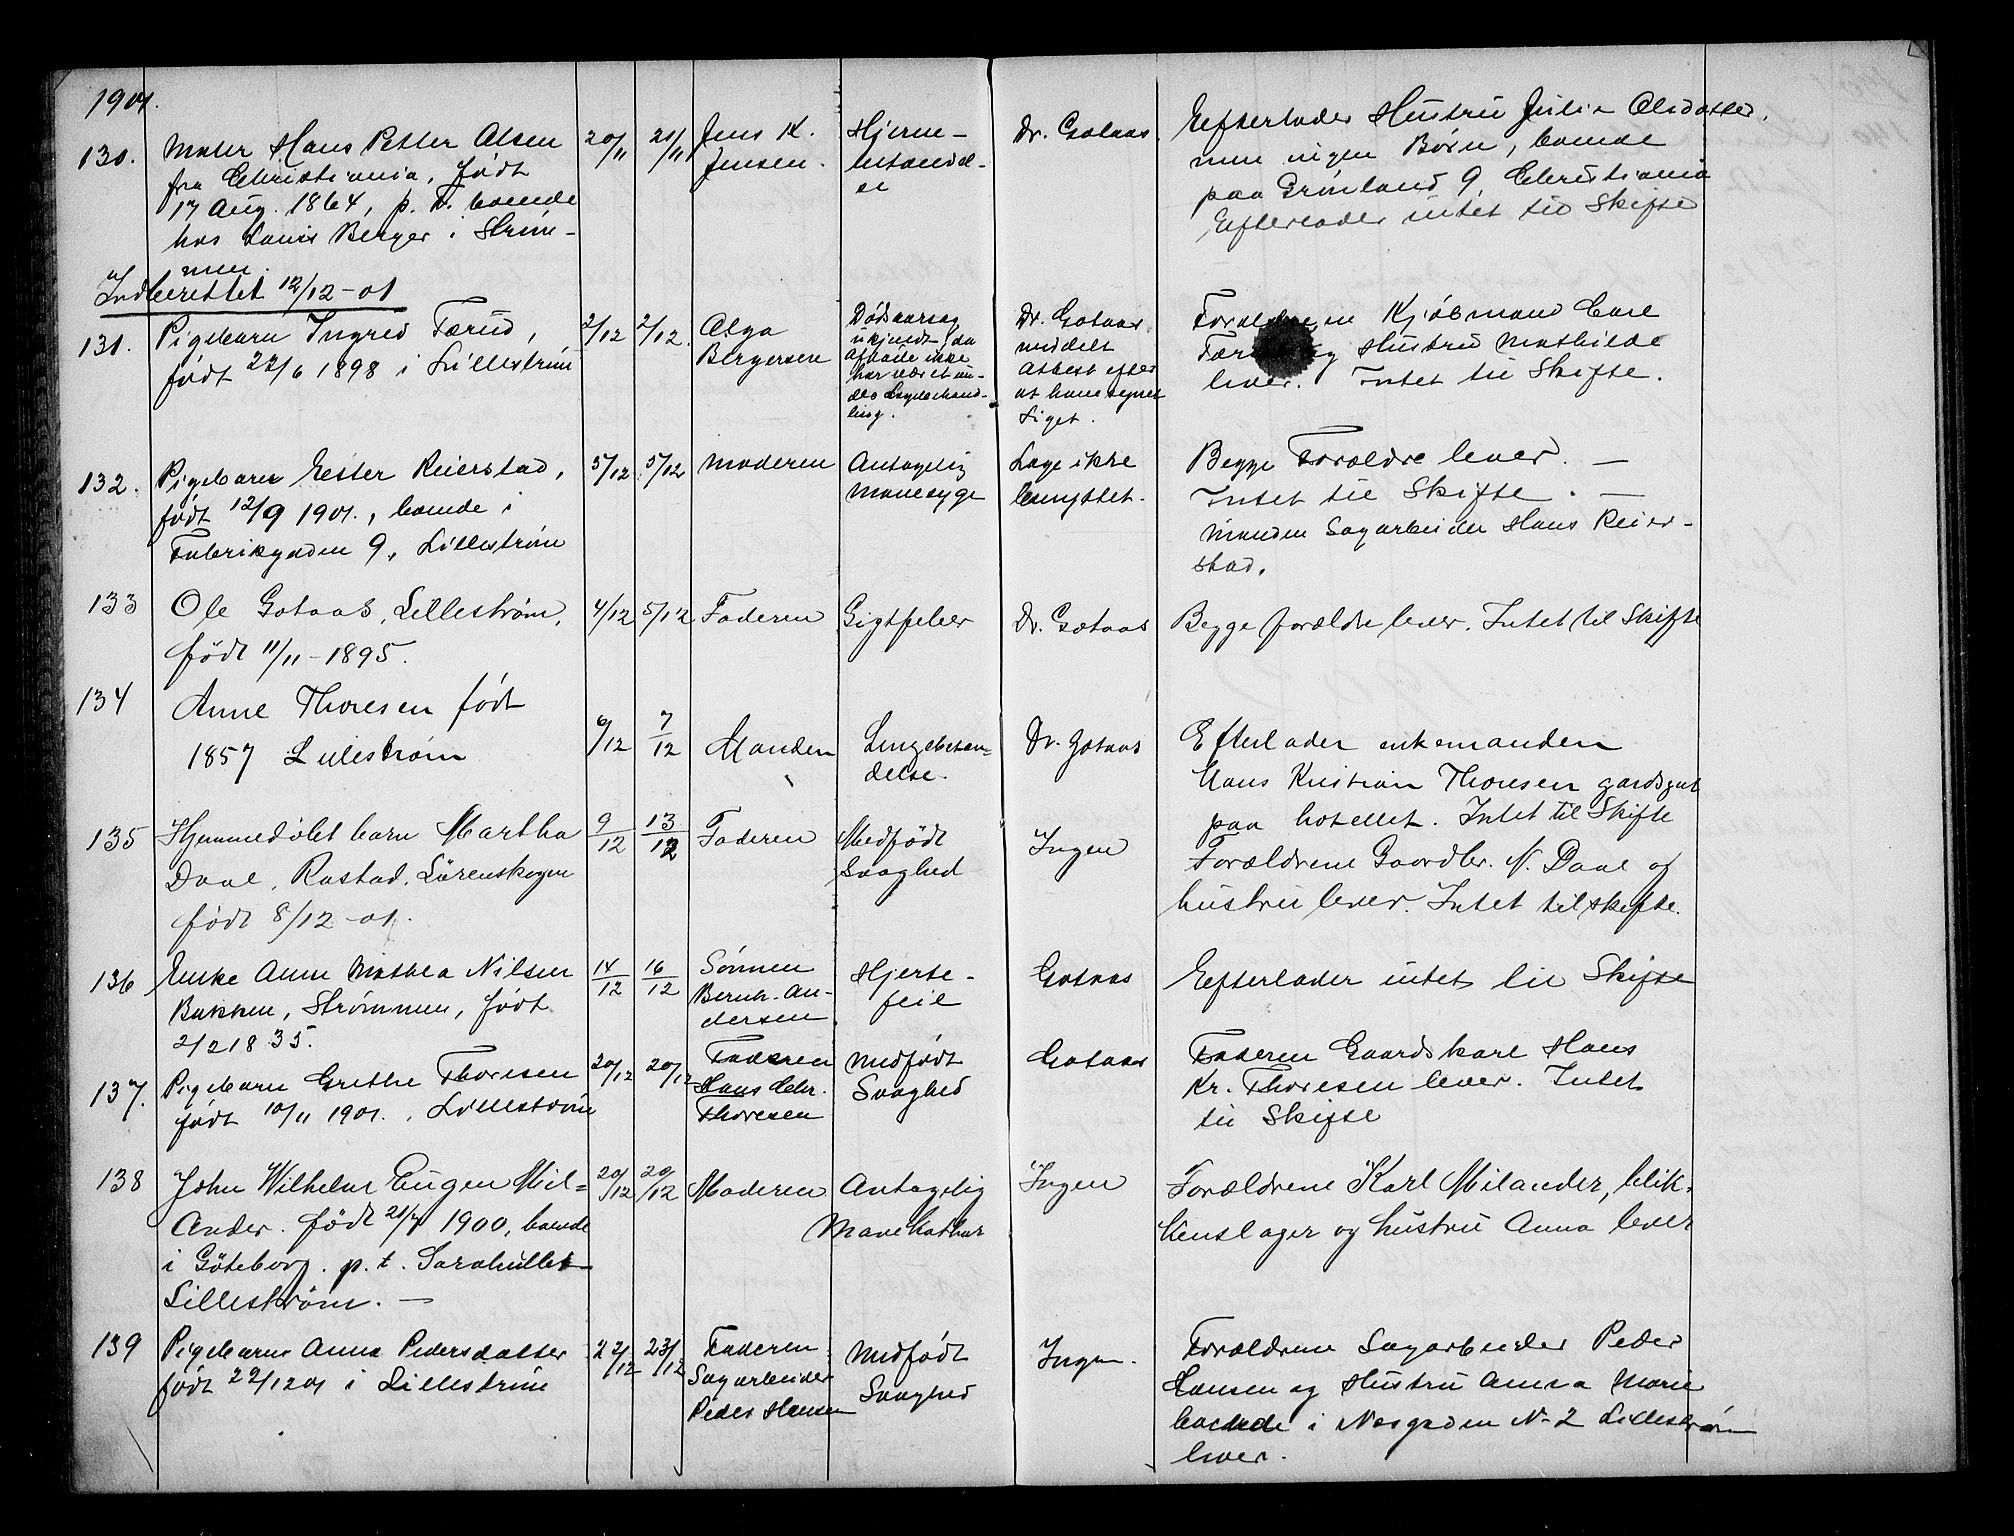 1901.
130. Maler Hans Petter Olsen 20/11 21/11 Jens K. Hjerne- Dr. Gotaas. Efterlader Hustru Julie Olsdatter,
fra Christiania, født Jensen. betændel- men ingen Børn, boende
17 Aug. 1864, p. t. boende se paa Grønland 9, Christiania
hos Louis Berger i Strøm- Efterlader intet til Skifte
men.
Indberettet 12/12-01
131. Pigebarn Ingred Færud, 2/12 2/12. Olga Dødsaarsag Dr. Gotaas Forældrene Kjøbmand Carl
født 22/6 1898 i Lillestrøm Bergersen ukjendt, da meddelt Færud og Hustru Mathilde
Afdøde ikke Attest efter lever. Intet til Skifte.
har været un- at have synet
der Lægebehand- Liget.
ling.
132. Pigebarn Ester Reierstad, 5/12 5/12 Moderen Antagelig Læge ikke Begge Forældre lever. —
født 12/9 1901., boende i Mavesyge benyttet. Intet til Skifte. —
Fabrikgaden 9, Lillestrøm Manden Sagarbeider Hans Reier-
stad.
133 Ole Gotaas, Lillestrøm, 4/12 5/12 Faderen Gigtfeber Dr. Gotaas Begge forældre lever. Intet til Skifte
født 11/11-1895.
134 Anne Thoresen født
1857 Lillestrøm 6/12 7/12 Manden Lungebetæn- Dr. Gotaas Efterlader enkemanden
delse. Hans Kristian Thoresen gardsgut
paa hotellet. Intet til Skifte
135 Hjemmedøbt barn Martha 9/12 13/12 Faderen Medfødt Ingen Forældrene Gaardbr. N. Daae og
Daae, Rastad, Lørenskogen Svaghed hustru lever. Intet til skifte.
født 8/12-01.
136 Enke Anne Mathea Nilsen 14/12 16/12 Sønnen Hjerte- Gotaas Efterlader intet til Skifte
Bakken, Strømmen, født Bernh. An- feil
2/2 1835. dersen
137. Pigebarn Grethe Thoresen 20/12 20/12 Faderen Medfødt Gotaas Faderen Gaardskarl Hans
født 10/11 1901., Lillestrøm Hans Chr. Svaghed Kr. Thoresen lever. Intet
Thoresen til Skifte
138 John Wilhelm Eugen Mil- 20/12 20/12 Moderen Antagelig Ingen Forældrene Karl Milander, blik-
Ander. født 21/4 1900, boende Mavekathar kenslager og hustru Anna lever
i Göteborg. p. t. Sarahullet
Lillestrøm. —
139 Pigebarn Anna Pedersdatter 22/12 23/12 Faderen Medfødt Ingen. Forældrene Sagarbeider Peder
født 22/12 01 i Lillestrøm Sagarbeider Svaghed Hansen og Hustru Anna Marie
Peder Hansen boende i Næsgaden N-2 Lillestrøm
lever.